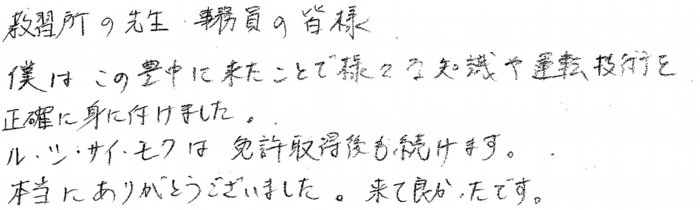 教習所の先生 事務員の皆様
僕はこの豊中に来たことで様々な知識や運転技術を
正確に身に付けました。
ル・ツ・サイ・モクは 免許取得後も続けます。
本当にありがとうございました。来て良かったです。